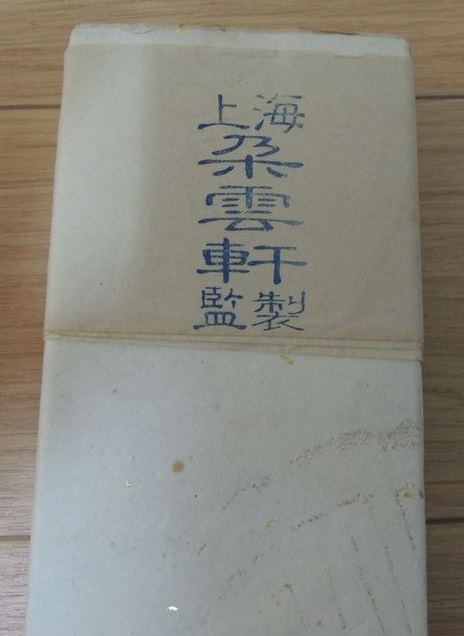 上海
朵
雲
軒
監製